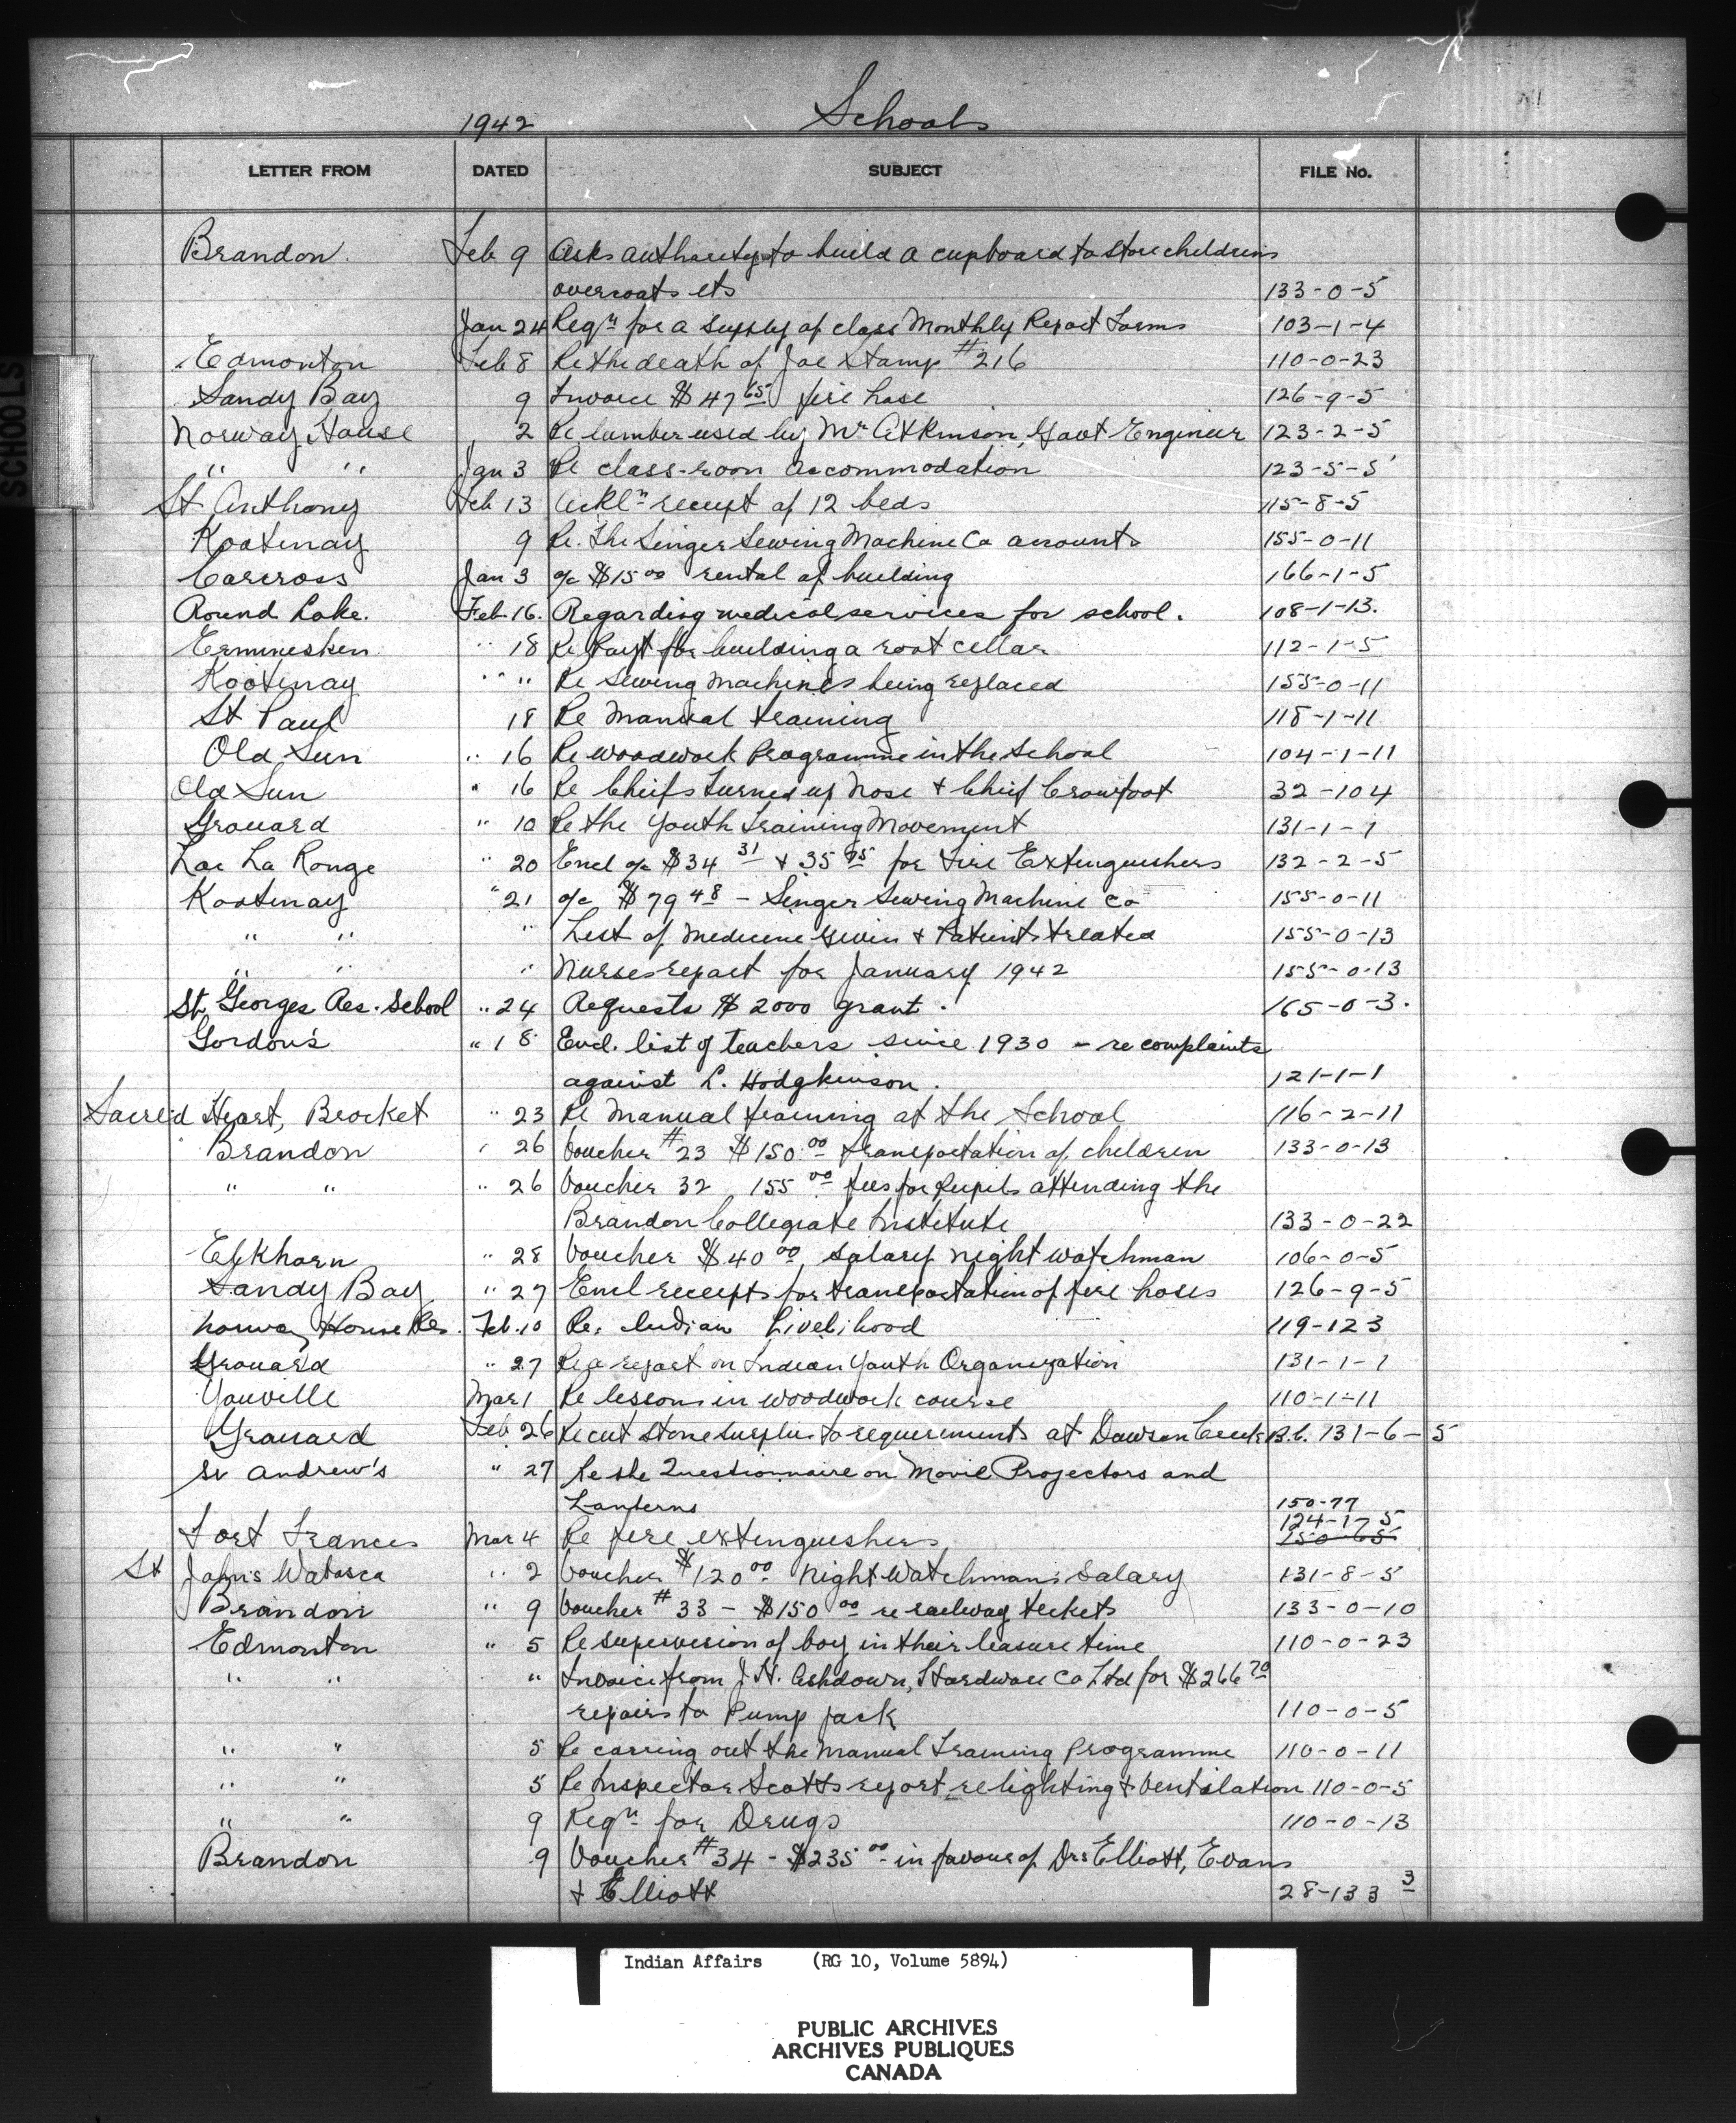 1942 Schools
LETTER FROM DATED SUBJECT FILE No.
SCHOOLS
Brandon. Feb 9 Asks authority to build a cupboard to store childrens
overcoats etc 133-0-5
Jan 24 Reqn for a supply of class Monthly Report Forms 103-1-4
Edmonton Feb 8 Re the death of Joe Stamp #216 110-0-23
Sandy Bay 9 Invoice $47 65 fire hose 126-9-5
Norway House 2 Re lumber used by Mr Atkinson, Govt Engineer 123-2-5
" " Jan 3 Re class-room accommodation 123-5-5
St Anthony Feb 13 Ackln receipt of 12 beds 115-8-5
Kootenay 9 Re. The Singer Sewing Machine Co accounts 155-0-11
Carcross Jan 3 a/c $15 00 rental of building 166-1-5
Round Lake. Feb. 16. Regarding medical services for school. 108-1-13.
Ermineskin " 18 Re Payt for building a root cellar 112-1-5
Kootenay " " Re Sewing Machines being replaced 155-0-11
St Paul 18 Re Manual training 118-1-11
Old Sun " 16 Re woodwork Programme in the School 104-1-11
Old Sun " 16 Re Chiefs Turned up Nose + Chief Crowfoot 32-104
Grouard " 10 Re the Youth Training Movement 131-1-1
Lac La Ronge " 20 Encl a/c $34 31 + 35 75 for Fire Extinguishers 132-2-5
Kootenay " 21 a/c $79 48 - Singer Sewing Machine Co 155-0-11
" " " List of Medicine given + Patients treated 155-0-13
" " " Nurses report for January 1942 155-0-13
St. Georges Res. School " 24 Requests $2000 grant. 165-0-3.
Gordon's " 18 Encl. list of teachers since 1930 - re complaints
against L. Hodgkinson. 121-1-1
Sacred Heart, Brocket " 23 Re Manual training at the School 116-2-11
Brandon " 26 Voucher #23 $150.00 transportation of children 133-0-13
" " " 26 Voucher 32 155 00 fees for Pupils attending the
Brandon Collegiate Institute 133-0-22
Elkhorn " 28 Voucher $40 00 salary night watchman 106-0-5
Sandy Bay " 27 Encl receipts for transportation of fire hoses 126-9-5
Norway House Res. Feb. 10 Re. Indian Livelihood 119-123
Grouard " 27 Re a report on Indian Youth Organization 131-1-1
Youville Mar 1 Re lessons in woodwork course 110-1-11
Grouard Feb 26 Re cut stone surplus to requirements at Dawson Creek B.C. 131-6-5
St Andrew's " 27 Re the Questionnaire on Movie Projectors and
Lanterns 150-77
Fort Frances Mar 4 Re fire extinguishers 124-1-5
150-65
St John's Wabasca " 2 Voucher $120 00 Night Watchman's Salary 131-8-5
Brandon " 9 Voucher #33 - $150 00 re railway tickets 133-0-10
Edmonton " 5 Re supervision of boy in their leasure time 110-0-23
" " " Invoice from J.H. Ashdown, Hardware Co Ltd for $266 70
repairs to Pump jack 110-0-5
" " 5 Re carring out the Manual Training Programme 110-0-11
" " 5 Re Inspector Scotts report re lighting + Ventilation 110-0-5
" " 9 Reqn for Drugs 110-0-13
Brandon 9 Voucher #34 - $235 00 in favour of Drs Elliott, Evans
+ Elliott 28-133 3
Indian Affairs (RG 10, Volume 5894)
PUBLIC ARCHIVES
ARCHIVES PUBLIQUES
CANADA